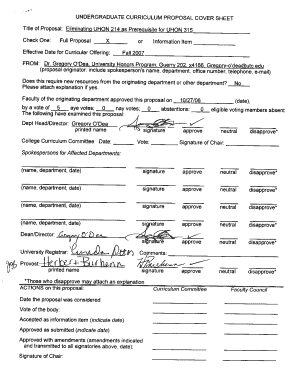 UNDERGRADUATE CURRICULUM PROPOSAL COVER SHEET
Title of Proposal: Eliminating UHON 214 as Prerequisite for UHON 315
Check One: Full Proposal X or Information Item
Effective Date for Curricular Offering: Fall 2007
FROM: Dr. Gregory O'Dea, University Honors Program, Guerry 202, x4166, Gregory-o'dea@utc.edu
(proposal originator: include spokesperson's name, department, office number, telephone, e-mail)
Does this require new resources from the originating department or other department? No
Please attach explanation if yes.
Faculty of the originating department approved this proposal on 10/27/08 (date),
by a vote of 5 aye votes: 0 nay votes: 0 abstentions: 0 eligible voting members absent
The following have examined this proposal:
Dept Head/Director: Gregory O'Dea
printed name signature approve neutral disapprove*
College Curriculum Committee Date: Vote: Signature of Chair:
Spokespersons for Affected Departments:
(name, department, date) signature approve neutral disapprove*
(name, department, date) signature approve neutral disapprove*
(name, department, date) signature approve neutral disapprove*
(name, department, date) signature approve neutral disapprove*
Dean/Director: Gregory O'Dea
signature approve neutral disapprove*
University Registrar: Comments:
Provost: Herbert Burhenn
printed name signature approve neutral disapprove*
*Those who disapprove may attach an explanation
ACTIONS on this proposal: Curriculum Committee Faculty Council
Date the proposal was considered
Vote of the body:
Accepted as information item (indicate date)
Approved as submitted (indicate date)
Approved with amendments (amendments indicated
and transmitted to all signatories above, date):
Signature of Chair: